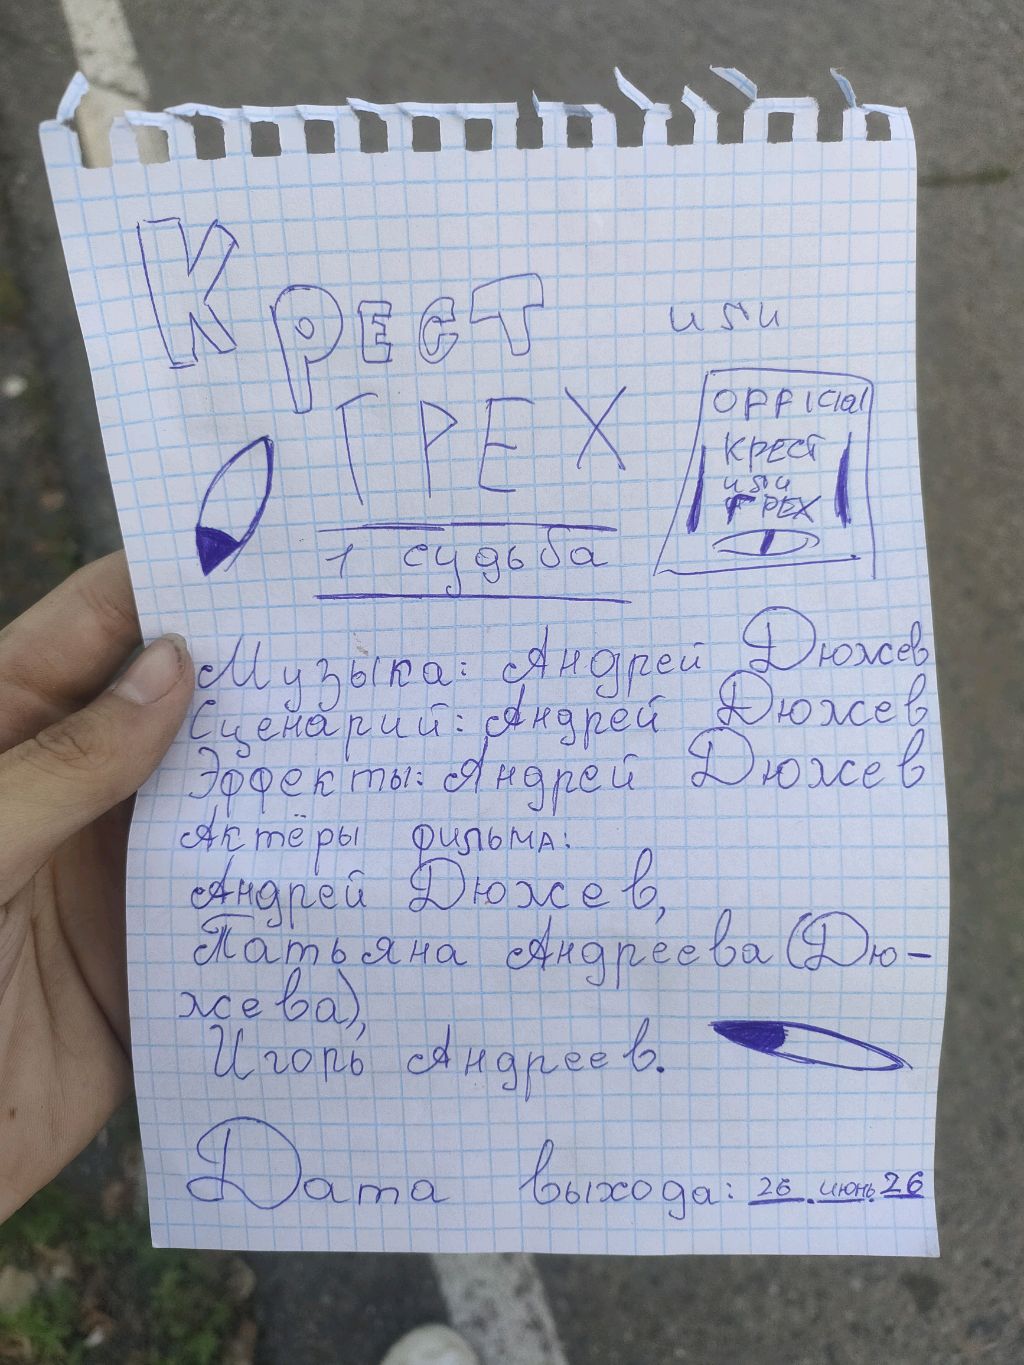 Крест или
ГРЕХ
1 судьба
OFFICIAL
КРЕСТ
или
ГРЕХ
Музыка: Андрей Дюжев
Сценарий: Андрей Дюжев
Эффекты: Андрей Дюжев
Актёры фильма:
Андрей Дюжев,
Татьяна Андреева (Дю-
жева),
Игорь Андреев.
Дата выхода: 26.июнь.26